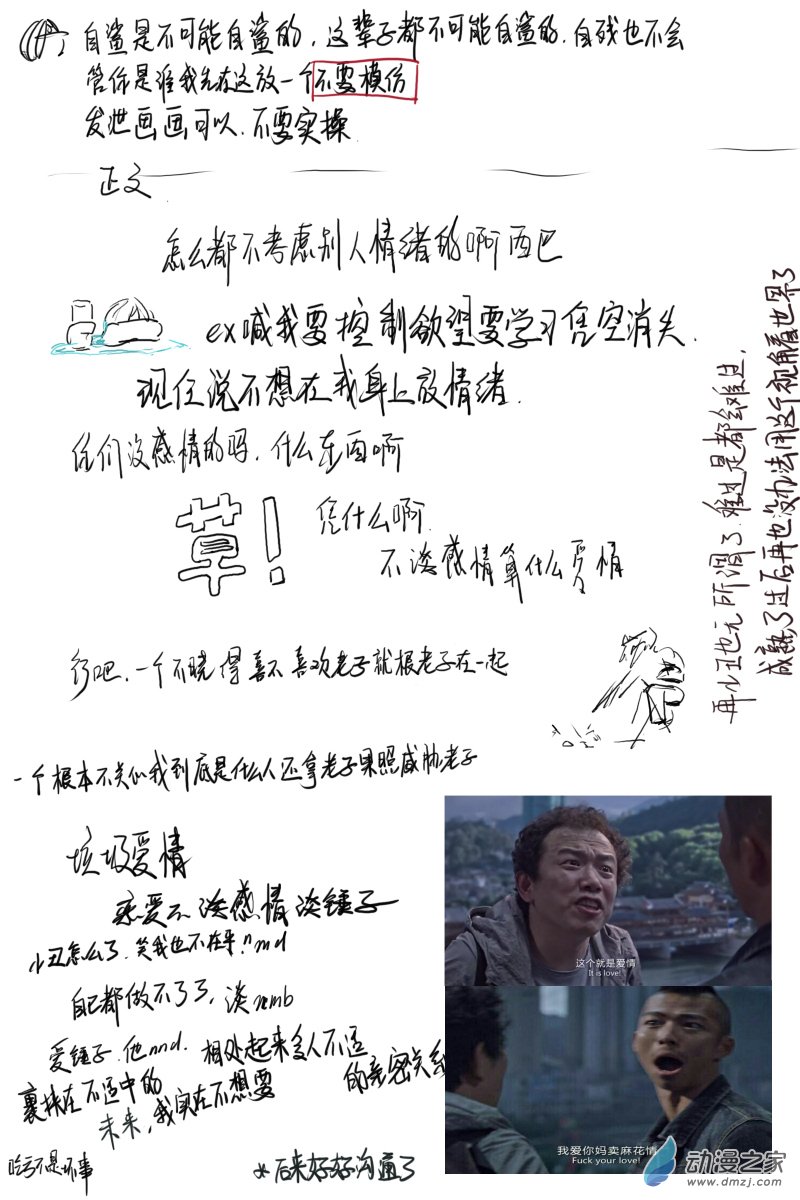 自鲨是不可能自鲨的，这辈子都不可能自鲨的，自残也不会
管你是谁我先在这放一个不要模仿
发泄画画可以，不要实操
正文
怎么都不考虑别人情绪的啊西巴
ex喊我要控制欲望要学习凭空消失.
现任说不想在我身上放情绪.
你们没感情的吗，什么东西啊
草!
凭什么啊
不谈感情算什么爱情
行吧，一个不晓得喜不喜欢老子就跟老子在一起
一个根本不关心我到底是什么人还拿老子果照威胁老子
再小丑也无所谓了，难过是都会难过，
成熟了过后再也没办法用这个视角看世界了
垃圾爱情
恋爱不谈感情谈锤子
小丑怎么了，笑我也不在乎，nmd
自己都做不了了，谈nmb
爱锤子，他nnd.
相处起来令人不适
的亲密关系
裹挟在不适中的
未来，我实在不想要
吃亏不是坏事
*后来好好沟通了
这个就是爱情
It is love!
我爱你妈卖麻花情
Fuck your love!
动漫之家
www.dmzj.com